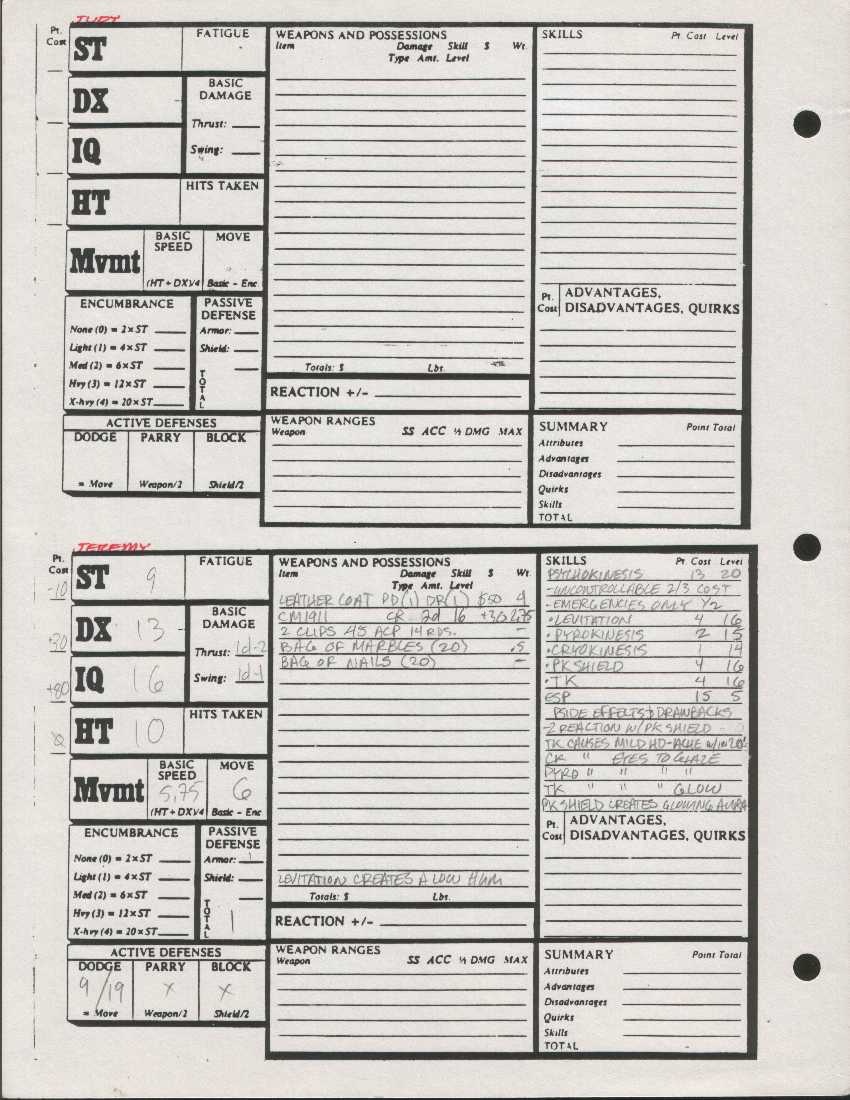 JUDY
Pt. Cost
ST
FATIGUE
DX
BASIC DAMAGE
Thrust:
IQ
Swing:
HT
HITS TAKEN
Mvmt
BASIC SPEED
MOVE
(HT + DX)/4
Basic – Enc.
ENCUMBRANCE
None (0) = 2×ST
Light (1) = 4×ST
Med (2) = 6×ST
Hvy (3) = 12×ST
X-hvy (4) = 20×ST
PASSIVE DEFENSE
Armor:
Shield:
TOTAL
ACTIVE DEFENSES
DODGE PARRY BLOCK
= Move Weapon/2 Shield/2
WEAPONS AND POSSESSIONS
Item Damage Skill $ Wt.
Type Amt. Level
Totals: $ Lbs.
REACTION +/–
WEAPON RANGES
Weapon SS ACC ½ DMG MAX
SKILLS Pt. Cost Level
Pt. Cost
ADVANTAGES,
DISADVANTAGES, QUIRKS
SUMMARY Point Total
Attributes
Advantages
Disadvantages
Quirks
Skills
TOTAL
JEREMY
Pt. Cost
-10 ST 9
FATIGUE
+30 DX 13
BASIC DAMAGE
Thrust: 1d-2
+80 IQ 16
Swing: 1d-1
HT 10
HITS TAKEN
Mvmt
BASIC SPEED
5.75
(HT + DX)/4
MOVE
6
Basic – Enc.
ENCUMBRANCE
None (0) = 2×ST
Light (1) = 4×ST
Med (2) = 6×ST
Hvy (3) = 12×ST
X-hvy (4) = 20×ST
PASSIVE DEFENSE
Armor: 1
Shield:
TOTAL 1
ACTIVE DEFENSES
DODGE PARRY BLOCK
9/19 X X
= Move Weapon/2 Shield/2
WEAPONS AND POSSESSIONS
Item Damage Skill $ Wt.
Type Amt. Level
LEATHER COAT PD(1) DR(1) $50 4
CM1911 CR 2d 16
2 CLIPS 45 ACP 14 RDS. –
BAG OF MARBLES (20) .5
BAG OF NAILS (20) –
LEVITATION CREATES A LOW HUM
Totals: $ Lbs.
REACTION +/–
WEAPON RANGES
Weapon SS ACC ½ DMG MAX
SKILLS Pt. Cost Level
PSYCHOKINESIS 13 20
-UNCONTROLLABLE 2/3 COST
-EMERGENCIES ONLY 1/2
•LEVITATION 4 16
•PYROKINESIS 2 15
•CRYOKINESIS 1 14
•PK SHIELD 4 16
•TK 4 16
ESP 15 5
PSIDE EFFECTS & DRAWBACKS
-2 REACTION W/PK SHIELD
TK CAUSES MILD HD-ACHE W/IN 20'
CK " EYES TO GLAZE
PYRO " " " "
TK " " " GLOW
PK SHIELD CREATES GLOWING AURA
Pt. Cost
ADVANTAGES,
DISADVANTAGES, QUIRKS
SUMMARY Point Total
Attributes
Advantages
Disadvantages
Quirks
Skills
TOTAL